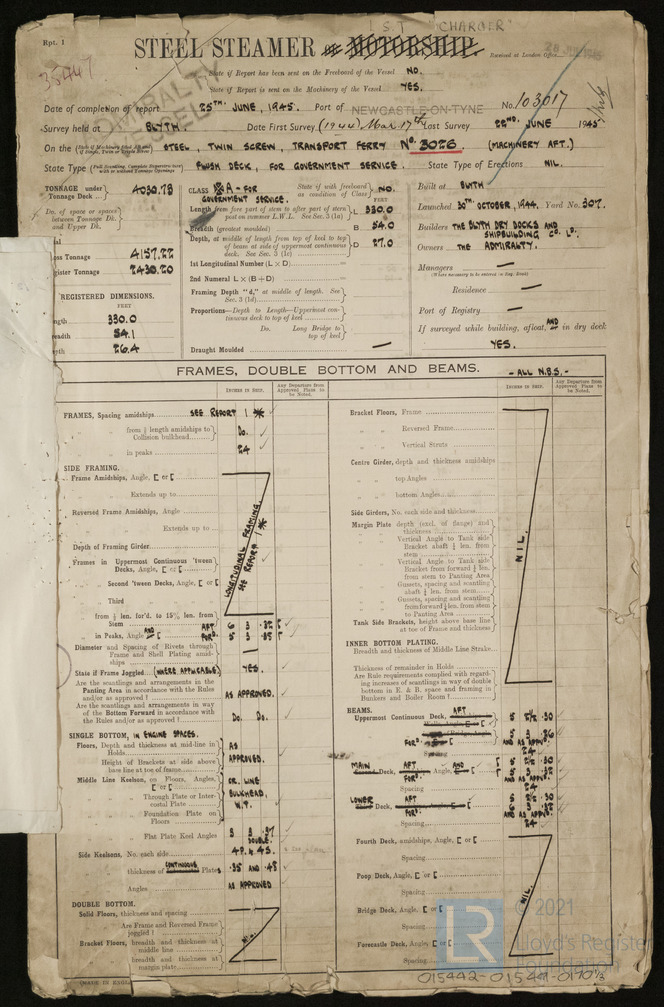 L.S.T. "CHARGER"
Rpt. 1
STEEL STEAMER or MOTORSHIP.
Received at London Office
35447
ADMIRALTY VESSEL
State if Report has been sent on the Freeboard of the Vessel NO.
State if Report is sent on the Machinery of the Vessel YES.
Date of completion of report 25TH JUNE, 1945. Port of NEWCASTLE-ON-TYNE No. 103017
Survey held at BLYTH. Date First Survey (1944) Mar 17th Last Survey 22ND JUNE 1945
On the STEEL, TWIN SCREW, TRANSPORT FERRY No. 3026 (MACHINERY AFT.)
State Type FLUSH DECK, FOR GOVERNMENT SERVICE. State Type of Erections NIL.
TONNAGE under Tonnage Deck 4030.78
No. of space or spaces between Tonnage Dk. and Upper Dk.
Gross Tonnage 4157.22
Register Tonnage 2430.20
REGISTERED DIMENSIONS.
FEET
330.0
54.1
26.4
CLASS A - FOR GOVERNMENT SERVICE.
State if with freeboard as condition of Class NO.
FEET
Length from fore part of stem to after part of stern post on summer L.W.L. See Sec. 3 (1a) L 330.0
Breadth (greatest moulded) B 54.0
Depth, at middle of length from top of keel to top of beam at side of uppermost continuous deck. See Sec. 3 (1c) D 27.0
1st Longitudinal Number (L x D)
2nd Numeral L x (B + D)
Framing Depth "d," at middle of length. See Sec. 3 (1d)
Proportions—Depth to Length—Uppermost continuous deck to top of keel
Do. Long Bridge to top of keel
Draught Moulded —
Built at BLYTH
Launched 30TH OCTOBER, 1944. Yard No. 307.
Builders THE BLYTH DRY DOCKS AND SHIPBUILDING CO. LD.
Owners THE ADMIRALTY.
Managers —
(Where necessary to be entered in Reg. Book)
Residence —
Port of Registry —
If surveyed while building, afloat, AND in dry dock
YES.
FRAMES, DOUBLE BOTTOM AND BEAMS.
- ALL N.B.S. -
INCHES IN SHIP.
Any Departure from Approved Plans to be Noted.
INCHES IN SHIP.
Any Departure from Approved Plans to be Noted.
FRAMES, Spacing amidships SEE REPORT 1*
from ⅕ length amidships to Collision bulkhead Do.
in peaks 24
SIDE FRAMING.
Frame Amidships, Angle, [ or [
Extends up to
Reversed Frame Amidships, Angle
Extends up to
Depth of Framing Girder
Frames in Uppermost Continuous 'tween Decks, Angle, [ or [
Second 'tween Decks, Angle, [ or [
Third
LONGITUDINAL FRAMING. SEE REPORT 1*
from ⅕ len. for'd. to 15% len. from Stem AFT 6 3 .32
AND in Peaks, Angle FORD. 5 3 .35
Diameter and Spacing of Rivets through Frame and Shell Plating amidships —
State if Frame Joggled (WHERE APPLICABLE) YES.
Are the scantlings and arrangements in the Panting Area in accordance with the Rules and/or as approved? AS APPROVED.
Are the scantlings and arrangements in way of the Bottom Forward in accordance with the Rules and/or as approved? Do. Do.
SINGLE BOTTOM, IN ENGINE SPACES.
Floors, Depth and thickness at mid-line in Holds AS APPROVED.
Height of Brackets at side above base line at toe of frame
Middle Line Keelson, on Floors, Angles, [ or [ CR. LINE
Through Plate or Intercostal Plate BULKHEAD, W.T.
Foundation Plate on Floors
Flat Plate Keel Angles 3 3 .37 DOUBLE.
Side Keelsons, No. each side 4P. 4S.
thickness of CONTINUOUS Plates .35 AND .45
Angles AS APPROVED
DOUBLE BOTTOM.
Solid Floors, thickness and spacing
Are Frame and Reversed Frame joggled?
NIL.
Bracket Floors, breadth and thickness at middle line
breadth and thickness at margin plate
Bracket Floors, Frame
Reversed Frame
Vertical Struts
Centre Girder, depth and thickness amidships
top Angles
bottom Angles
Side Girders, No. each side and thickness
Margin Plate depth (excl. of flange) and thickness
Vertical Angle to Tank side Bracket abaft ⅕ len. from stem
Vertical Angle to Tank side Bracket from forward ⅕ len. from stem to Panting Area
Gussets, spacing and scantling abaft ⅕ len. from stem
Gussets, spacing and scantling from forward ⅕ len. from stem to Panting Area
Tank Side Brackets, height above base line at toe of Frame and thickness
NIL.
INNER BOTTOM PLATING.
Breadth and thickness of Middle Line Strake
Thickness of remainder in Holds
Are Rule requirements complied with regarding increases of scantlings in way of double bottom in E. & B. space and framing in Bunkers and Boiler Room?
BEAMS.
Uppermost Continuous Deck, AFT 5 2½ .30
FORD. 5 3 .36
AND AS APPVD.
Spacing 24
MAIN Deck, AFT AND 5 2½ .30
FORD. 5 3 .32
AND AS APPVD.
Spacing 24
LOWER Deck, AFT 5 2½ .30
FORD. 5 3 .32
AND AS APPVD.
Spacing 24
Fourth Deck, amidships, Angle, [ or [
Spacing
Poop Deck, Angle, [ or [
Spacing
Bridge Deck, Angle, [ or [
Spacing
Forecastle Deck, Angle, [ or [
Spacing
NIL.
LR
© 2021
Lloyd's Register Foundation
015442-015449-0170⅓